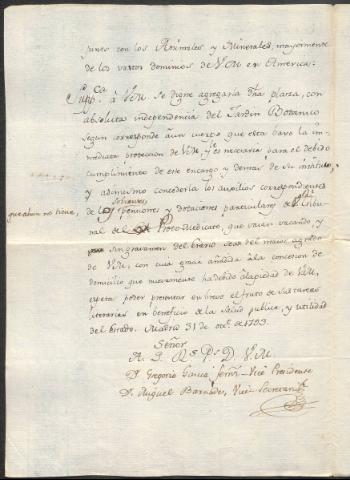 junto con los Animales y Minerales, mayormente
de los vastos dominios de V.M. en America:
Supp.ca á V.M. se digne agregarla dha plaza, con
absoluta independencia del Jardin Botanico
segun corresponde á un cuerpo que está baxo la in-
mediata proteccion de V.M., y le es necesaria para el debido
cumplimento de este encargo y demas de su instituto,
y asimismo concederla los auxilios correspondientes
sobrantes
que ahun no tiene,
de las pensiones y dotaciones particulares del Tribu-
nal del Proto-Medicato, que vaian vacando, y
sin gravamen del Erario sean del maior agrado
de V.M., con cuia gracia añadida á la concesion de
domicilio que nuevamente ha debido á la piedad de V.M.,
espera poder presentar en breve el fruto de sus tareas
literarias en beneficio de la Salud publica, y utilidad
del Estado. Madrid 31 de de 1793.
Señor
A. L. R.s P.s D V.M.
D. Gregorio Garcia Fern.z Vice Presidente
D. Miguel Barnades, Vice Secretario